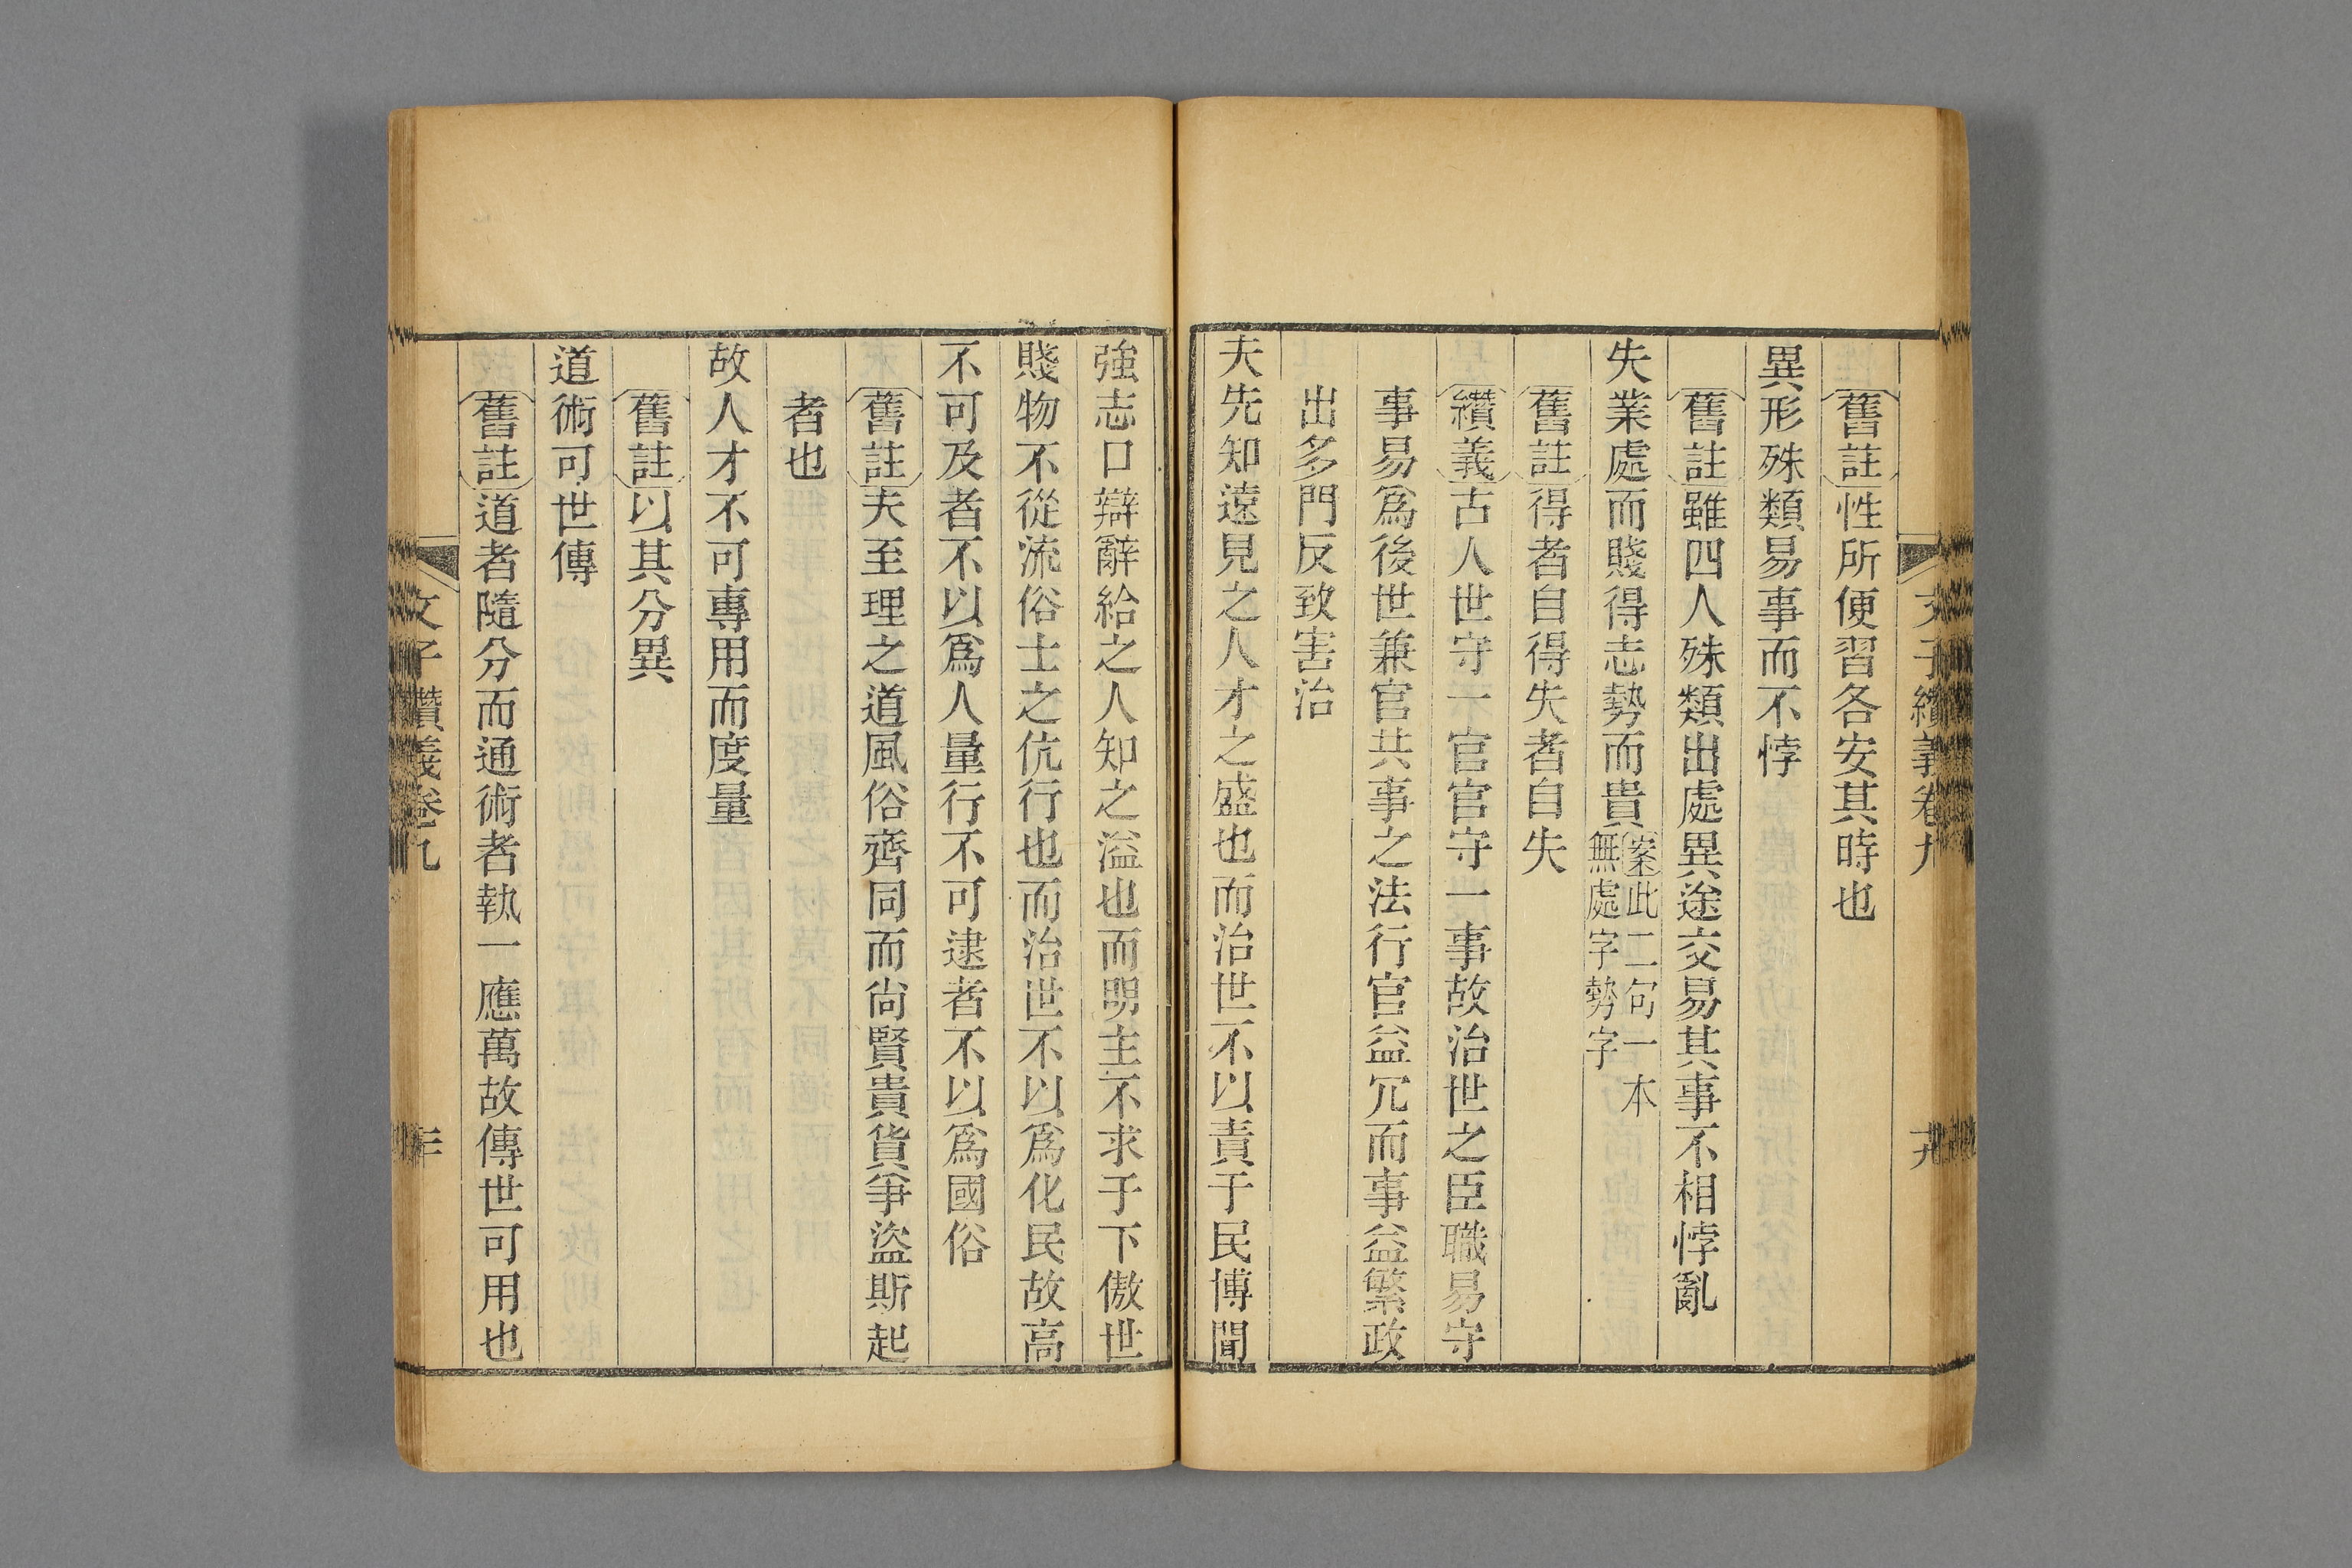 文子纘義卷九 十九
舊註性所便習各安其時也
異形殊類易事而不悖
舊註雖四人殊類出處異途交易其事不相悖亂
失業處而賤得志勢而貴案此二句一本無處字勢字
舊註得者自得失者自失
纘義古人世守一官官守一事故治世之臣職易守
事易爲後世兼官共事之法行官益冗而事益繁政
出多門反致害治
夫先知遠見之人才之盛也而治世不以責于民博聞
強志口辯辭給之人知之溢也而明主不求于下傲世
賤物不從流俗士之伉行也而治世不以爲化民故高
不可及者不以爲人量行不可逮者不以爲國俗
舊註夫至理之道風俗齊同而尚賢貴貨爭盜斯起
者也
故人才不可專用而度量
舊註以其分異
道術可世傳
舊註道者隨分而通術者執一應萬故傳世可用也
文子纘義卷九